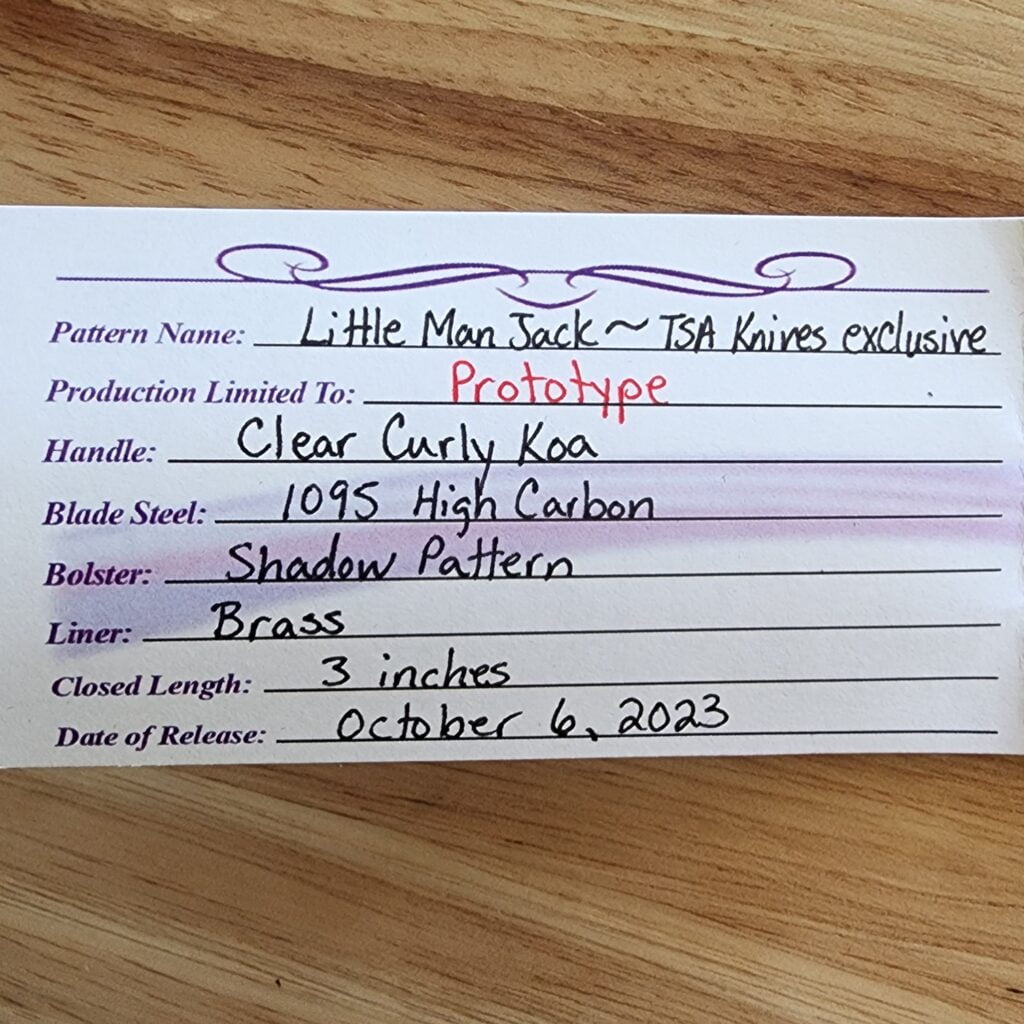 Pattern Name: Little Man Jack ~ TSA Knives exclusive
Production Limited To: Prototype
Handle: Clear Curly Koa
Blade Steel: 1095 High Carbon
Bolster: Shadow Pattern
Liner: Brass
Closed Length: 3 inches
Date of Release: October 6, 2023